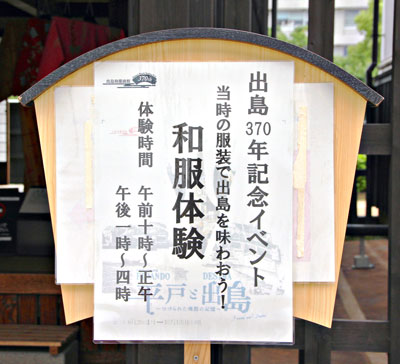 出島370年記念イベント
当時の服装で出島を味わおう！
和服体験
体験時間 午前十時～正午
午後一時～四時
平戸と出島